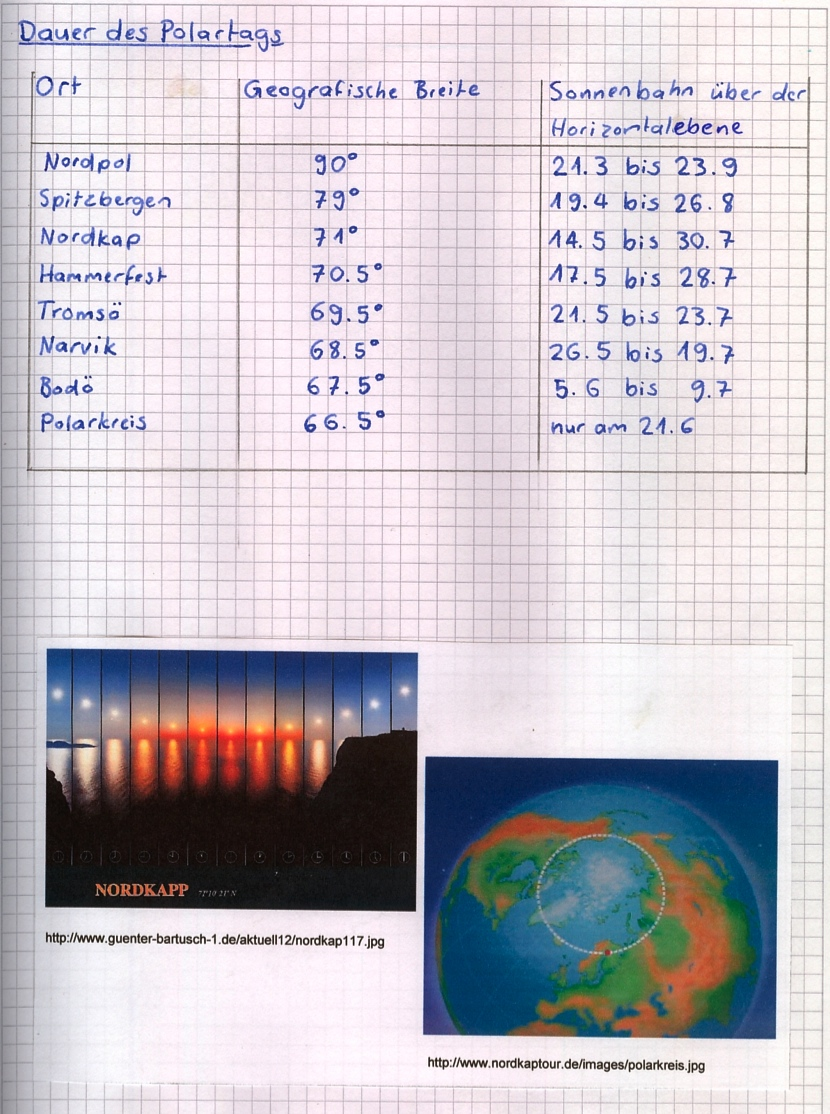 Dauer des Polartags
Ort Geografische Breite Sonnenbahn über der
Horizontalebene
Nordpol 90° 21.3 bis 23.9
Spitzbergen 79° 19.4 bis 26.8
Nordkap 71° 14.5 bis 30.7
Hammerfest 70.5° 17.5 bis 28.7
Tromsö 69.5° 21.5 bis 23.7
Narvik 68.5° 26.5 bis 19.7
Bodö 67.5° 5.6 bis 9.7
Polarkreis 66.5° nur am 21.6
NORDKAPP
http://www.guenter-bartusch-1.de/aktuell12/nordkap117.jpg
http://www.nordkaptour.de/images/polarkreis.jpg